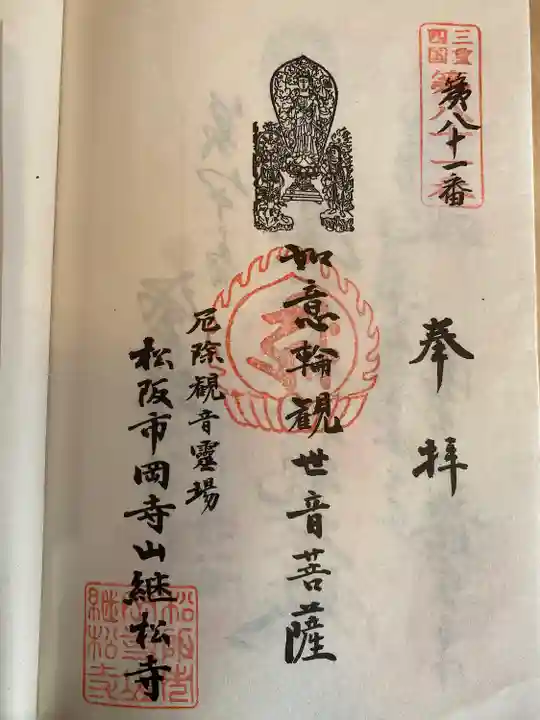 三重
四国
第八十一番
奉拝
如意輪観世音菩薩
厄除観音霊場
松阪市岡寺山継松寺
継松寺